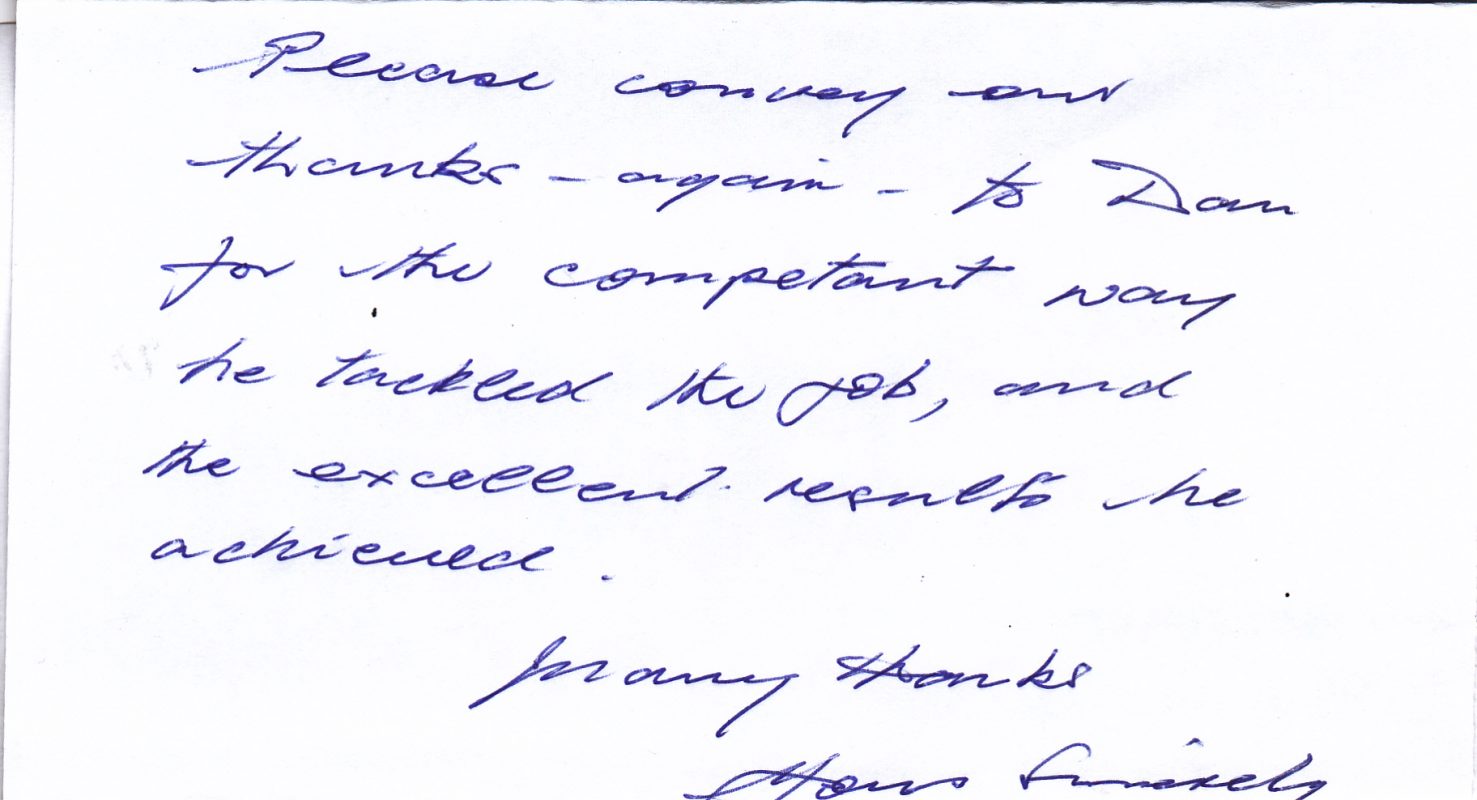 Please convey our
thanks - again - to Dan
for the competant way
he tackled the job, and
the excellent results he
achieved.
Many thanks
Yours Sincerely